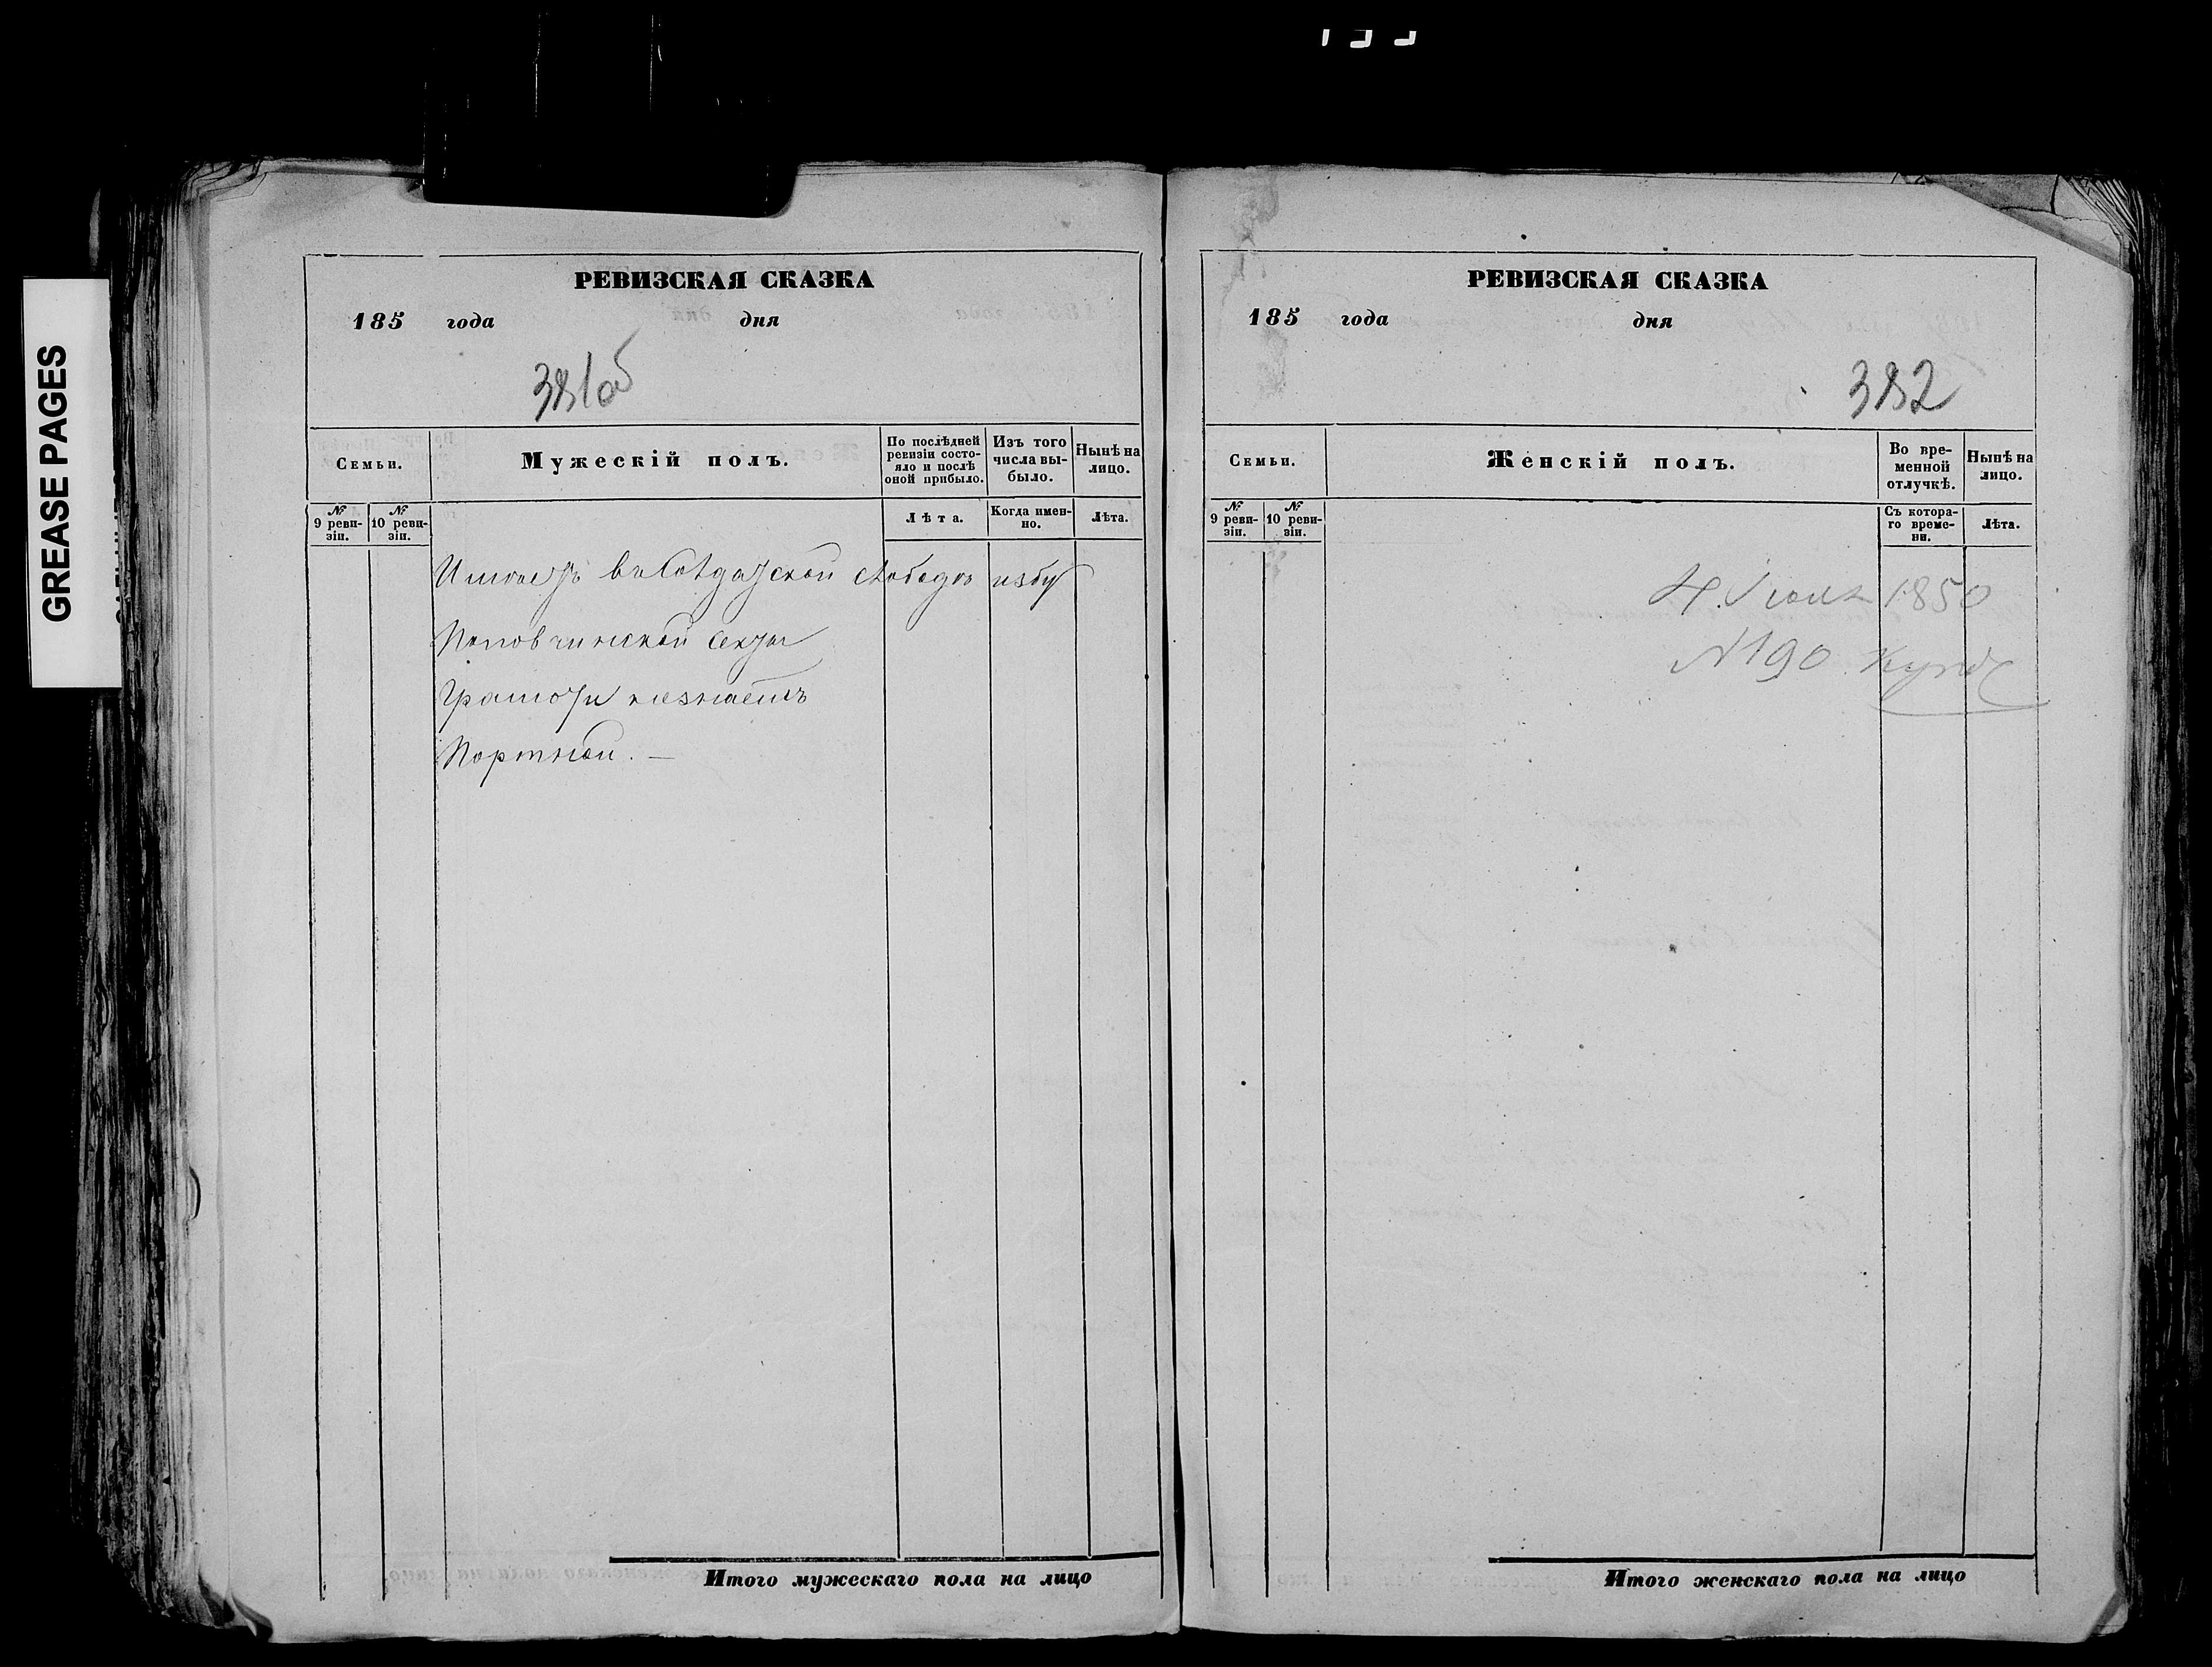 GREASE PAGES
РЕВИЗСКАЯ СКАЗКА
185 года дня
381об
Семьи.
Мужескій полъ.
По послѣдней ревизіи состояло и послѣ оной прибыло.
Изъ того числа выбыло.
Нынѣ на лицо.
№ 9 ревизіи.
№ 10 ревизіи.
Лѣта.
Когда именно.
Лѣта.
Имѣетъ въ Солдатской слободѣ избу
Поповчинской секты
Грамоти незнаетъ
Портной. —
Итого мужескаго пола на лицо
РЕВИЗСКАЯ СКАЗКА
185 года дня
382
Семьи.
Женскій полъ.
Во временной отлучкѣ.
Нынѣ на лицо.
№ 9 ревизіи.
№ 10 ревизіи.
Съ котораго времени.
Лѣта.
4. Іюля 1850
№190
Итого женскаго пола на лицо